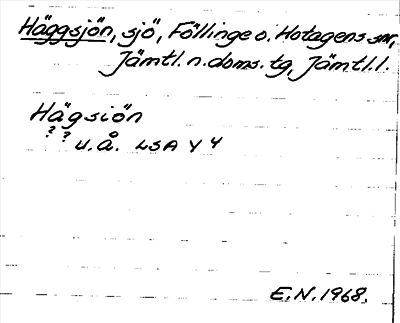 Häggsjön, sjö, Föllinge o. Hotagens snr,
Jämtl. n. doms. tg, Jämtl. l.
Hägsiön
? ? u.å. LSA Y 4
E.N. 1968.